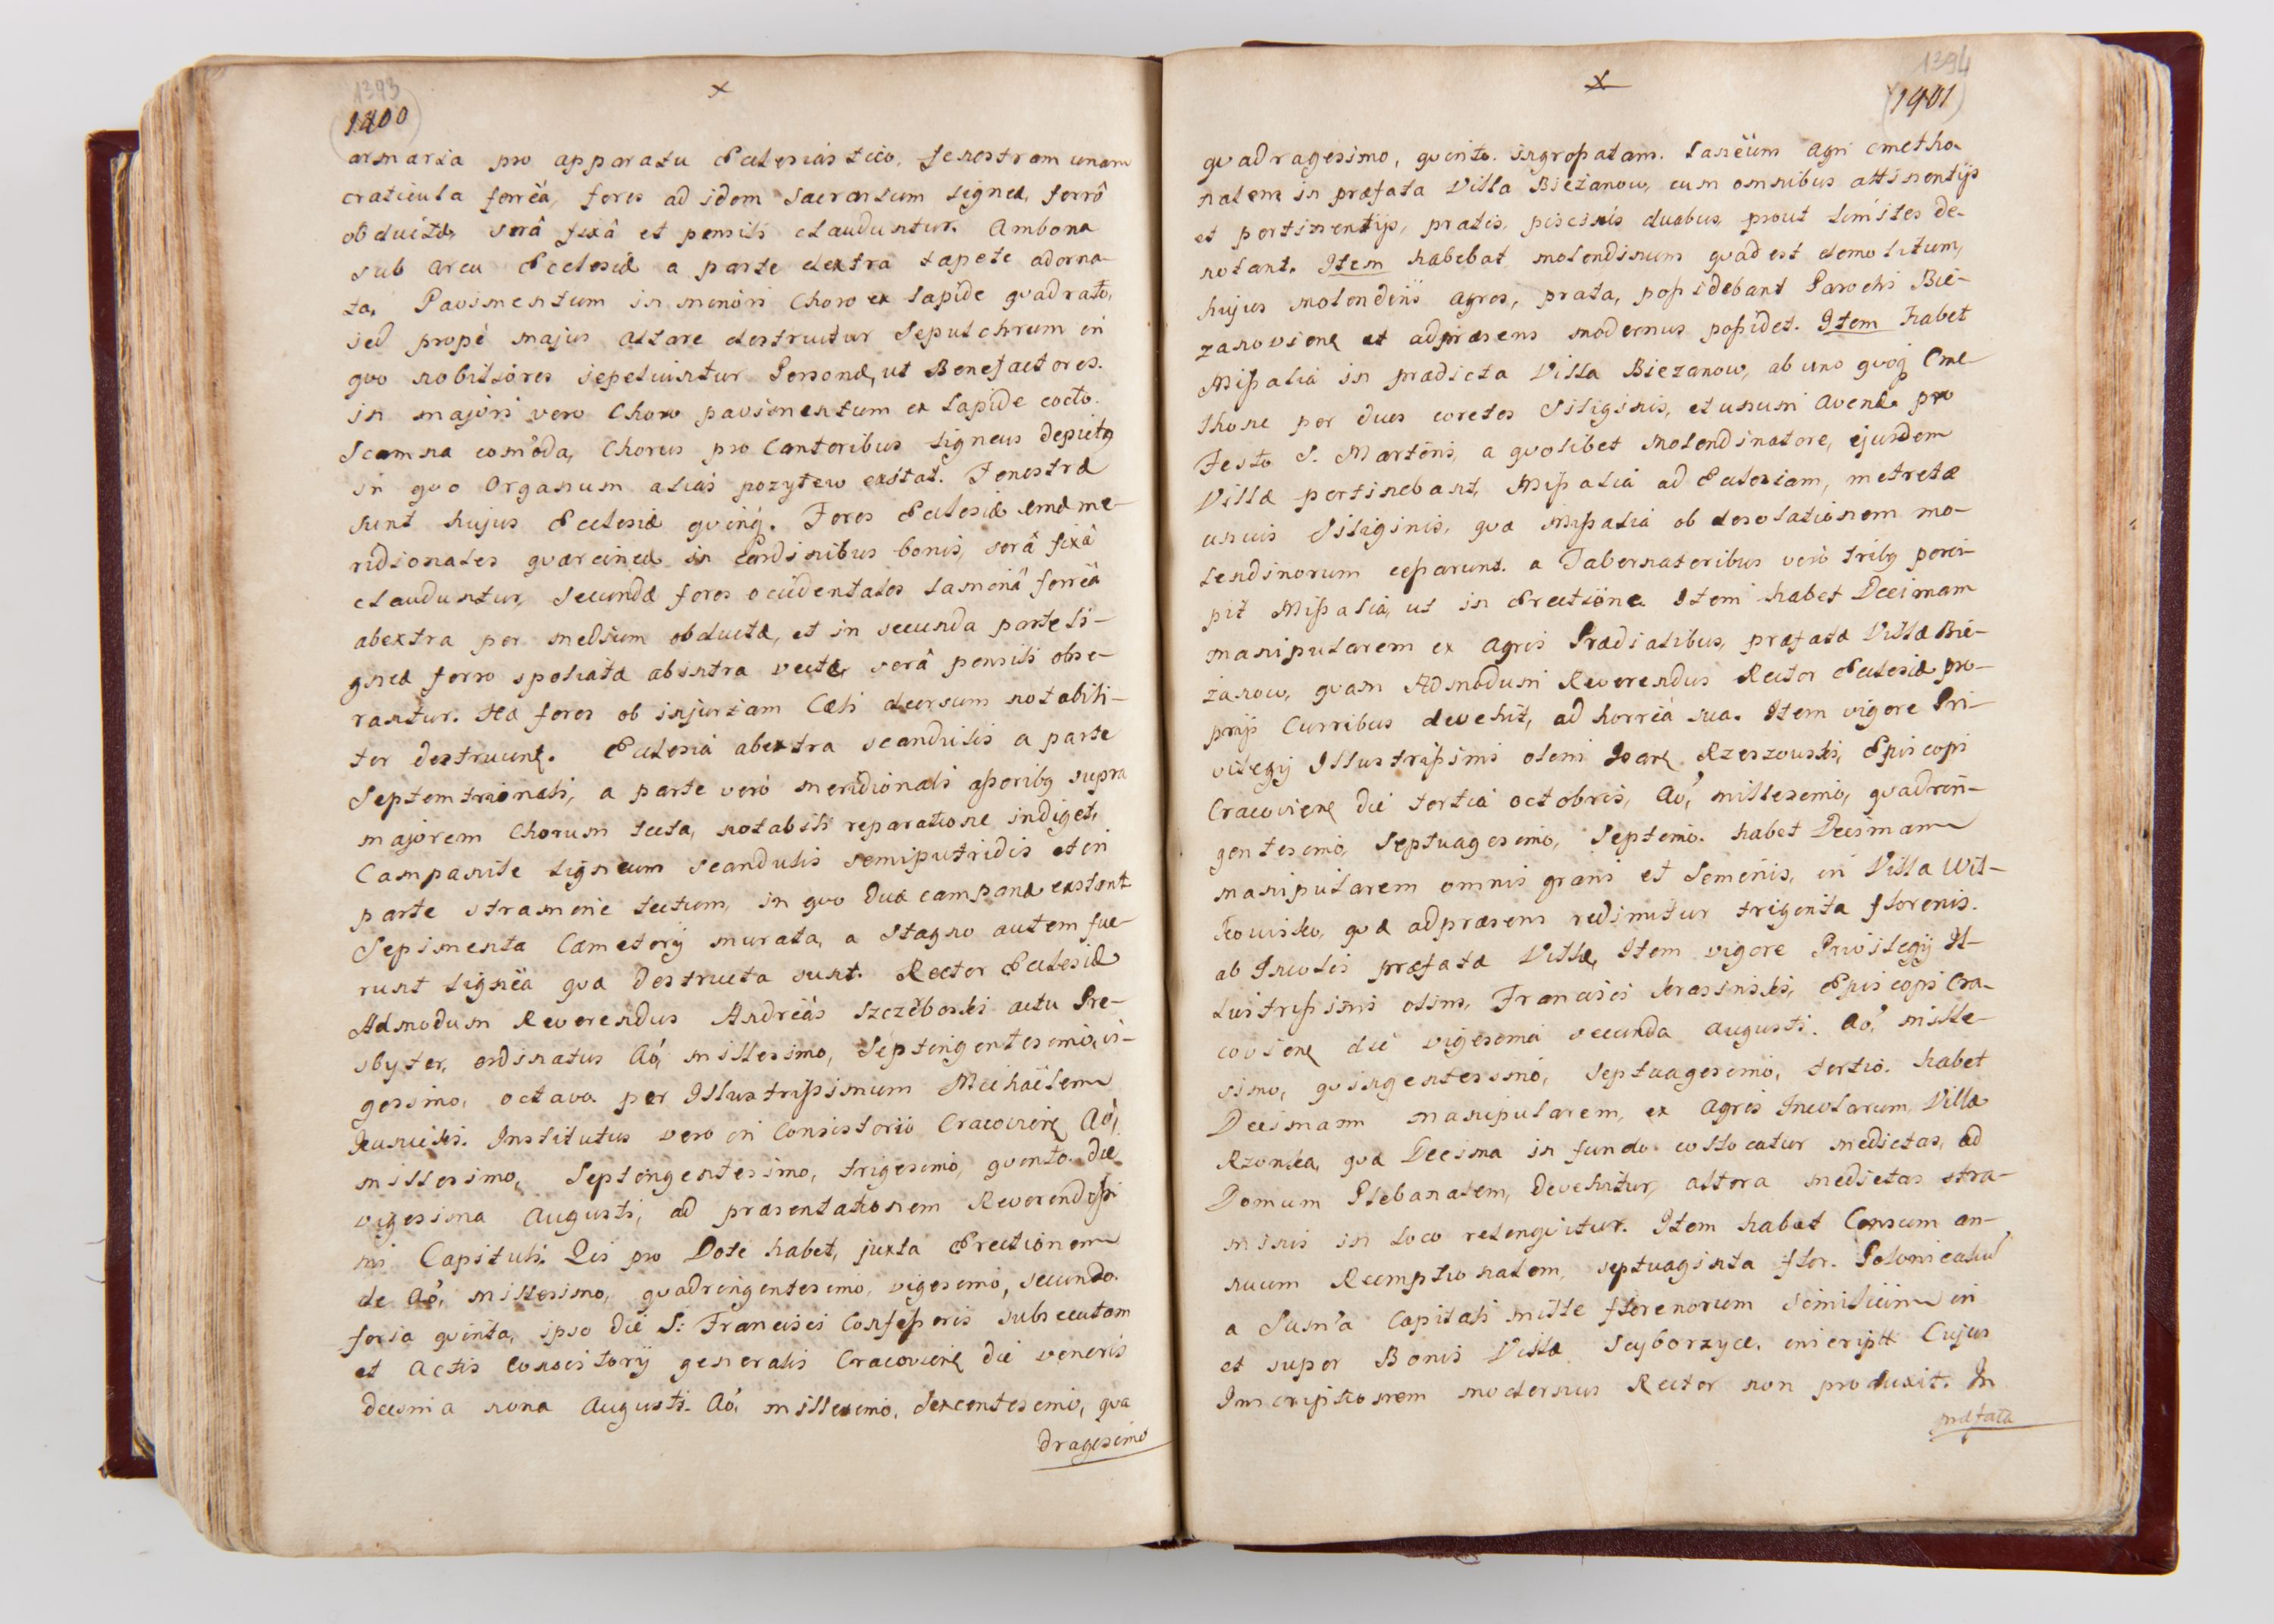 1393
1400
x
armaria pro apparatu Ecclesiastico, fenestram unam
craticula ferrëa, fores ad idem Sacrarium ligneæ, ferrô
obductæ, serâ fixâ et pensili clauduntur. Ambona
sub arcu Ecclesiæ a parte dextra tapete adorna-
ta, Pavimentum in minori Choro ex lapide quadrato,
sed propè majus altare destruitur Sepulchrum in
quo nobiliores sepeliuntur Personæ, ut Benefactores.
in majori vero Choro pavimentum ex lapide cocto.
Scamna comoda, Chorus pro Cantoribus ligneus depictq
in quo Organum aliàs pozytew exstat. Fenestræ
sunt hujus Ecclesiæ quinq. Fores Ecclesiæ unæ me-
ridionales quærcineæ in Cardinibus bonis, serâ fixâ
clauduntur, secundæ fores occidentales laminâ ferrëâ
abextra per medium obductæ, et in secunda parte li-
gneæ ferro spoliatæ abintra vecte, serâ pensili obse-
rantur. Hæ fores ob injuriam Cæli deorsum notabili-
ter destruunt. Ecclesia abextra scandulis a parte
Septemtrionali, a parte verò meridionali asseribq supra
majorem Chorum tecta, notabili reparatione indiget.
Campanile ligneum scandulis semiputridis et in
parte stramine tectum, in quo duæ campanæ exstant
Sepimenta Cæmeterÿ murata, a Stagno autem fue-
runt lignëa quæ destructa sunt. Rector Ecclesiæ
Admodum Reverendus Andrëas Szczeboski actu Pre-
sbyter, ordinatus Aó, millesimo, Septingentesimo, vi-
gesimo, octavo per Illustrissimum Michaëlem
Kunicki. Institutus vero in Consistorio Cracovien Aó,
millesimo, Septingentesimo, trigesimo, quinto die
vigesima Augusti, ad præsentationem Reverendissi
mi Capituli. Qui pro Dote habet, juxta Erectionem
de Aó, millesimo, quadringentesimo, vigesimo, secundo.
feria quinta, ipso die S: Francisci Confessoris subsecutam
et Actis Consistorÿ generalis Cracovien die veneris
decima nona Augusti. Aó, millesimo, Sexcentesimo, qua
dragesimo
1394
1401
x
quadragesimo, quinto. ingrossatam. Lanëum Agri cmetho
nalem in præfata Villa Bieżanow, cum omnibus attinentijs
et pertinentijs, pratis, piscinis duabus, prout limites de-
notant. Item habebat molendinum quod est demolitum,
hujus molendini agros, prata, possidebant Parochi Bie-
zanovien et adpræsens modernus possidet. Item habet
Missalia in prædicta Villa Biezanow, ab uno quoq Cme
thone per duos coretos Siliginis, et unum avenæ pro
Festo S. Martini, a quolibet Molendinatore, ejusdem
Villæ pertinebant, Missalia ad Ecclesiam, metretæ
unius Siliginis, quæ Missalia ob desolationem mo-
lendinorum cessarunt. a Tabernatoribus verò tribq perci-
pit Missalia, ut in Erectione. Item habet Decimam
manipularem ex Agris Prædialibus, præfatæ Villæ Bie-
żanow, quam Admodum Reverendus Rector Ecclesiæ pro-
prijs Curribus devehit, ad horrëa sua. Item vigore Pri-
vilegij Illustrissimi olim Joan Rzeszowski, Episcopi
Cracovien die tertia octobris, Aó, millesimo, quadrin-
gentesimo, Septuagesimo, Septimo. habet Decimam
manipularem omnis grani et Seminis, in Villa Wit-
kowisko, quæ adpræsens redimitur triginta florenis.
ab Incolis præfatæ Villæ, Item vigore Privilegij Il-
lustrissimi olim, Francisci Krasinski, Episcopi Cra-
covien die vigesima secunda Augusti. Aó, mille-
simo, quingentesimo, Septuagesimo, tertio. habet
Decimam manipularem, ex Agris Incolarum, Villæ
Rzonka, quæ Decima in fundo collocatur medietas, ad
Domum Plebanalem, devehitur, altera medietas stra-
minis in loco relinquitur. Item habet Censum an-
nuum Reemptionalem, septuaginta flor. Polonicaliu
a Suma Capitali mille florenorum similium in
et super Bonis Villæ Scyborzyce. inscript. Cujus
Inscriptionem modernus Rector non produxit. In
præfata